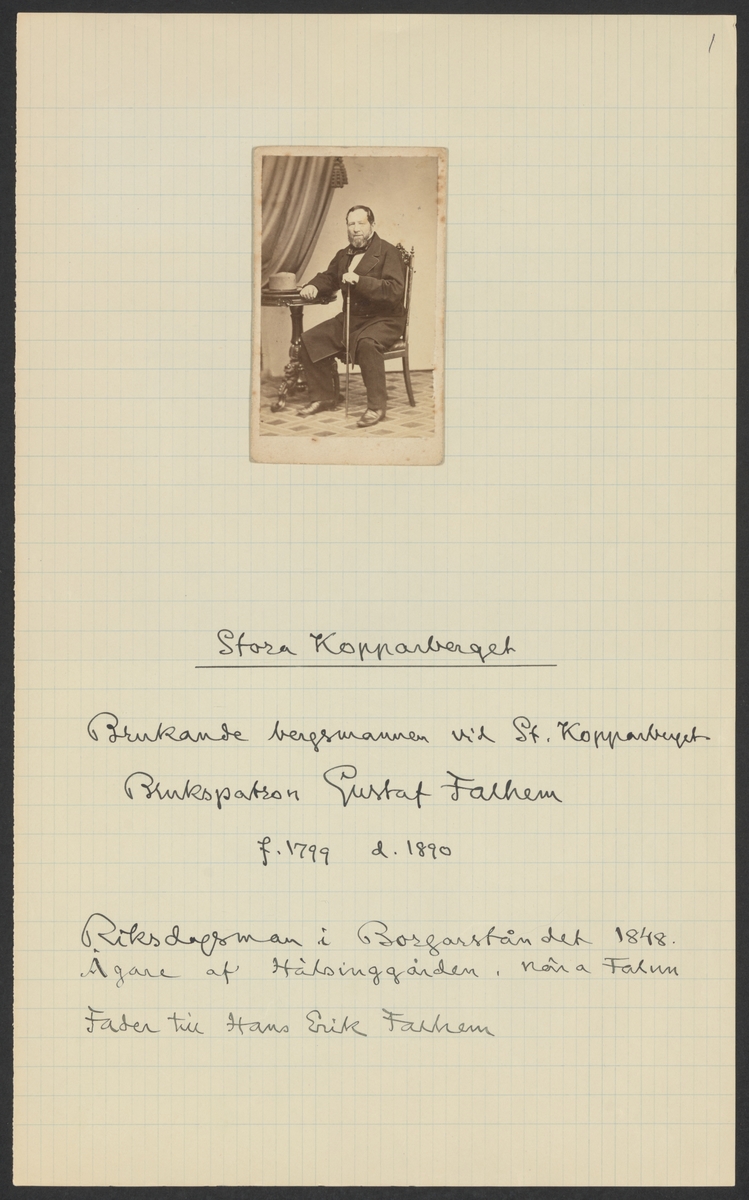 1
Stora Kopparberget
Brukande bergsmannen vid St. Kopparberget
Brukspatron Gustaf Falhem
f. 1799 d. 1890
Riksdagsman i Borgarståndet 1848.
Ägare af Hälsinggården, nära Falun
Fader till Hans Erik Falhem